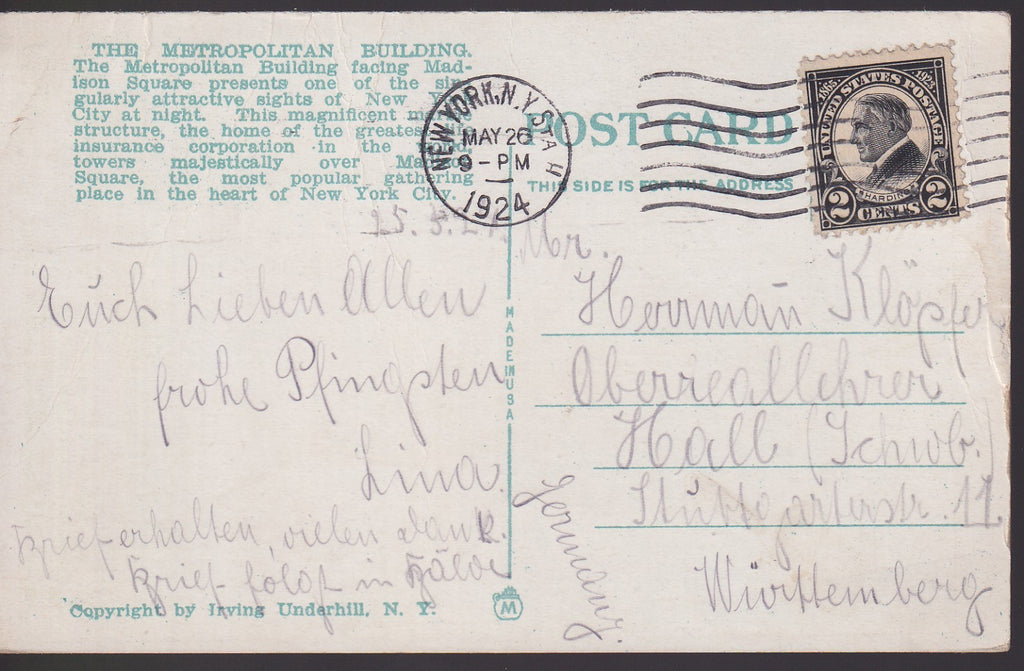 THE METROPOLITAN BUILDING.
The Metropolitan Building facing Mad-
ison Square presents one of the sin-
gularly attractive sights of New Y
City at night. This magnificent m
structure, the home of the greatest
insurance corporation in the
towers majestically over Madison
Square, the most popular gathering
place in the heart of New York City.
NEW YORK, N.Y. STA H
MAY 26
9-PM
1924
POST CARD
THIS SIDE IS FOR THE ADDRESS
UNITED STATES POSTAGE
1865 1923
HARDING
2 CENTS 2
25. 5. 24.
Euch Lieben Allen
frohe Pfingsten
Lina.
Brief erhalten, vielen dank.
Brief folgt in Bälde
MADE IN USA
Mr.
Herrman Klöpfer
Oberreallehrer
Hall (Schwb.
Stuttgarterstr. 11
Württemberg
Germany.
Copyright by Irving Underhill, N. Y.
M